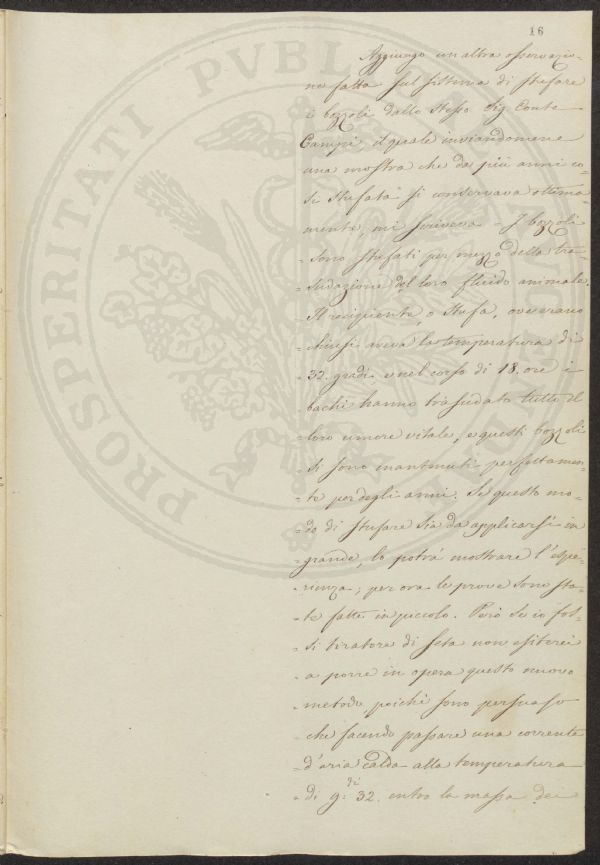 16
Aggiungo un altra osservazio-
ne fatta sul sistema di stufare
i bozzoli dallo stesso Sig Conte
Campi, il quale inviandomene
una mostra che da più anni co-
si stufata si conservava ottima-
mente, mi scriveva = I bozzoli
= sono stufati per mezzo della tra-
= sudazione del loro fluido animale.
= Il recipiente, o Stufa, ove erano
= chiusi aveva la temperatura di
= 32. gradi, e nel corso di 18. ore i
= bachi hanno trasudato tutto il
= loro umore vitale, e questi bozzoli
= si sono mantenuti perfettamen-
= te per degli anni. Se questo mo-
= do di stufare sia da applicarsi in
= grande, lo potrà mostrare l'espe-
= rienza; per ora le prove sono sta-
= te fatte in piccolo. Però se io fos-
= si tiratore di seta non esiterei
= a porre in opera questo nuovo
= metodo, poichè sono persuaso
= che facendo passare una corrente
= d'aria calda alla temperatura
= di g.di 32. entro la massa de
PROSPERITATI PVBL